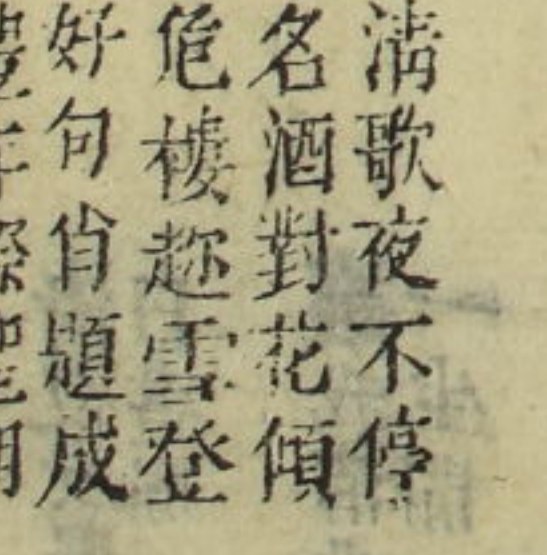 清歌夜不停
名酒對花傾
危樓趂雪登
好句肖題成